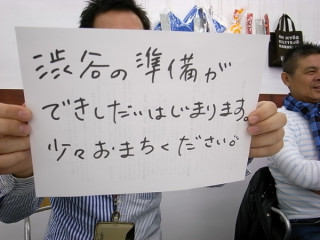 渋谷の準備が
できしだいはじまります。
少々おまちください。